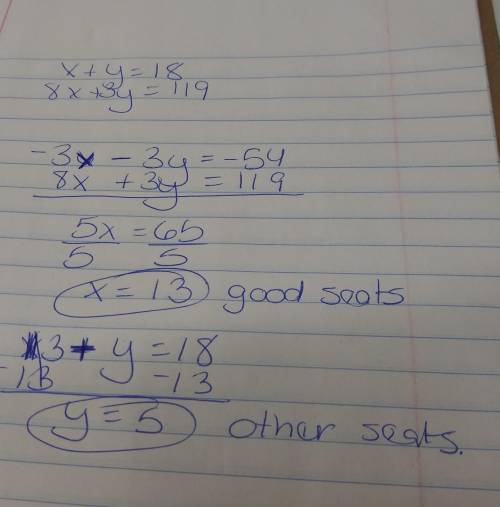 x + y = 18
8x + 3y = 119
-3x - 3y = -54
8x + 3y = 119
5x = 65
5 5
x = 13 good seats
13 + y = 18
-13 -13
y = 5 other seats.